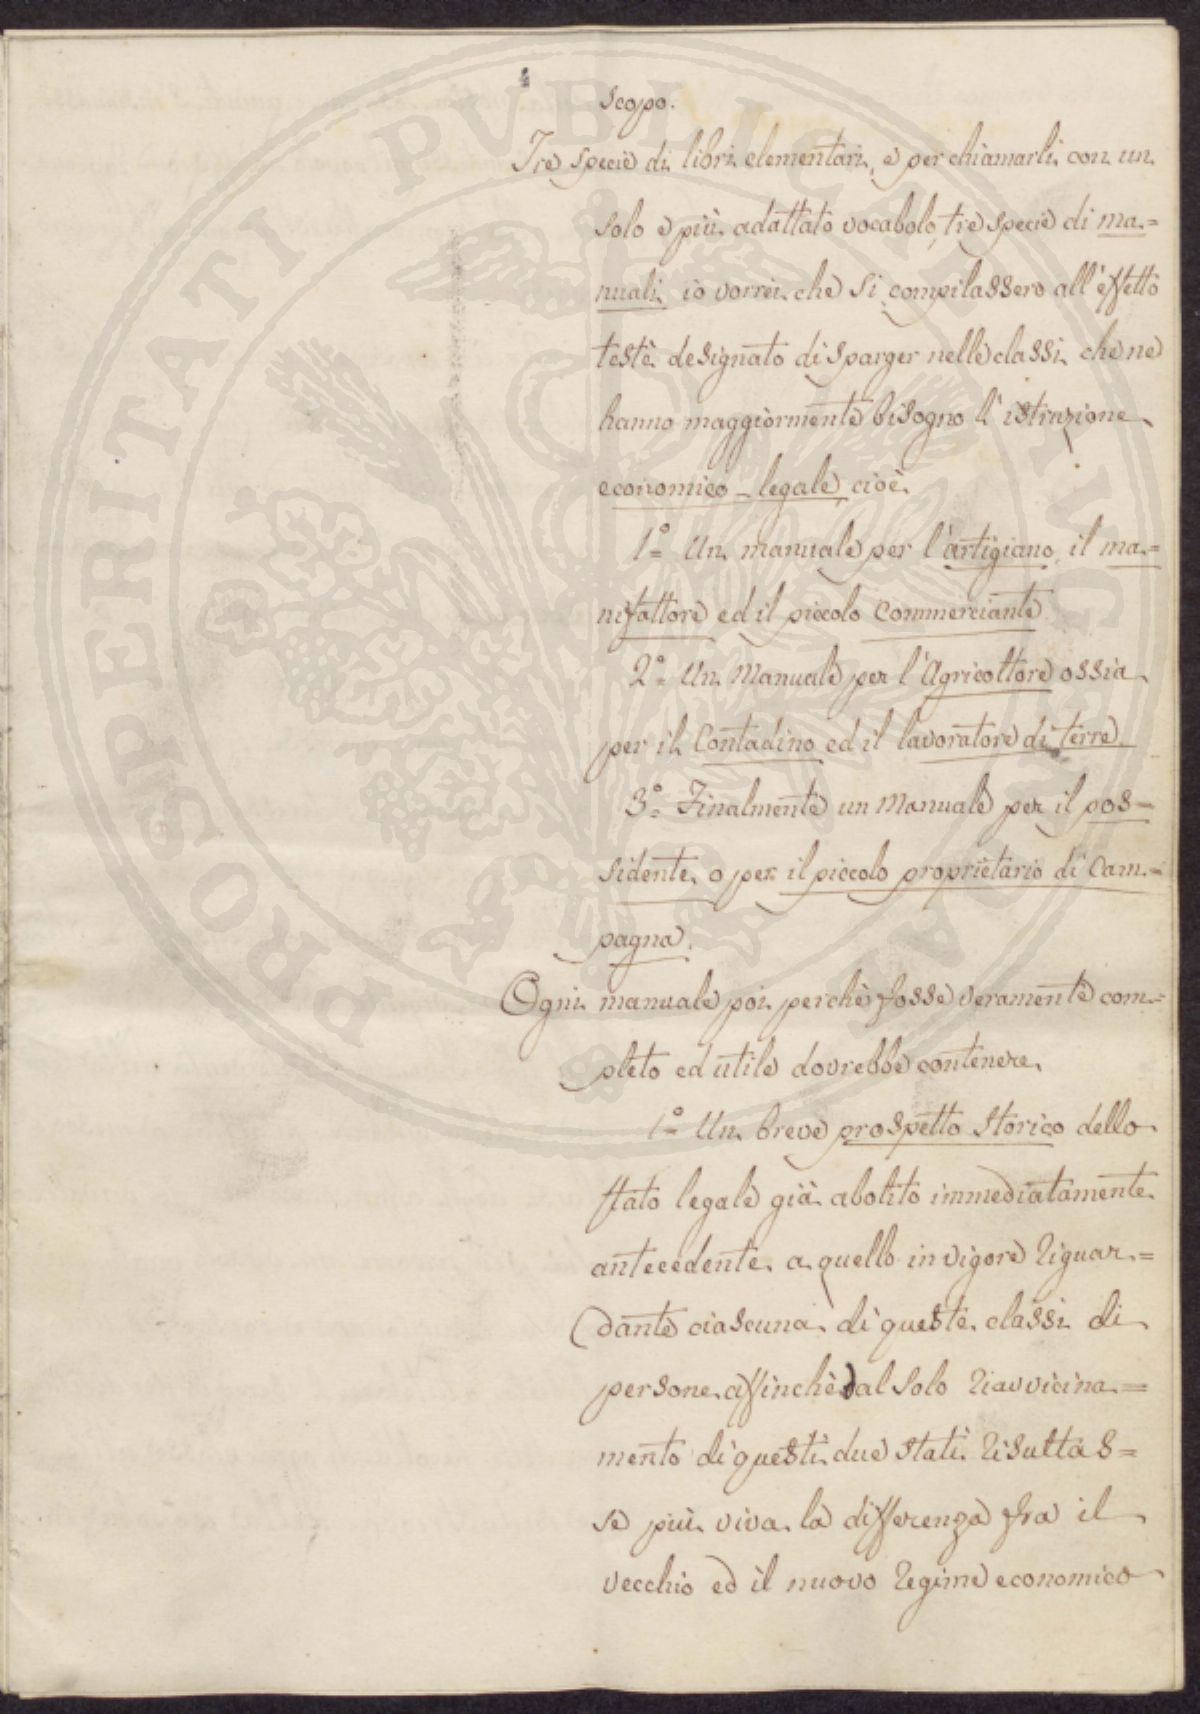 scopo.
Tre specie di libri elementari, e per chiamarli con un
solo e più adattato vocabolo, tre specie di ma=
nuali io vorrei che si compilassero all'effetto
testè designato di sparger nelle classi che ne
hanno maggiormente bisogno l'istruzione
economico-legale, cioè.
1º Un manuale per l'artigiano, il ma=
nifattore ed il piccolo Commerciante
2º Un Manuale per l'Agricoltore ossia
per il Contadino ed il lavoratore di terre.
3º Finalmente un Manuale per il pos=
sidente o per il piccolo proprietario di Cam=
pagna.
Ogni manuale poi perchè fosse veramente com=
pleto ed utile dovrebbe contenere.
1º Un breve prospetto Storico dello
stato legale già abolito immediatamente
antecedente a quello in vigore riguar=
dante ciascuna di queste classi di
persone affinchè dal solo riavvicina=
mento di questi due stati risultas=
se più viva la differenza fra il
vecchio ed il nuovo regime economico
PROSPERITATI PVBLICAE AVGENDAE